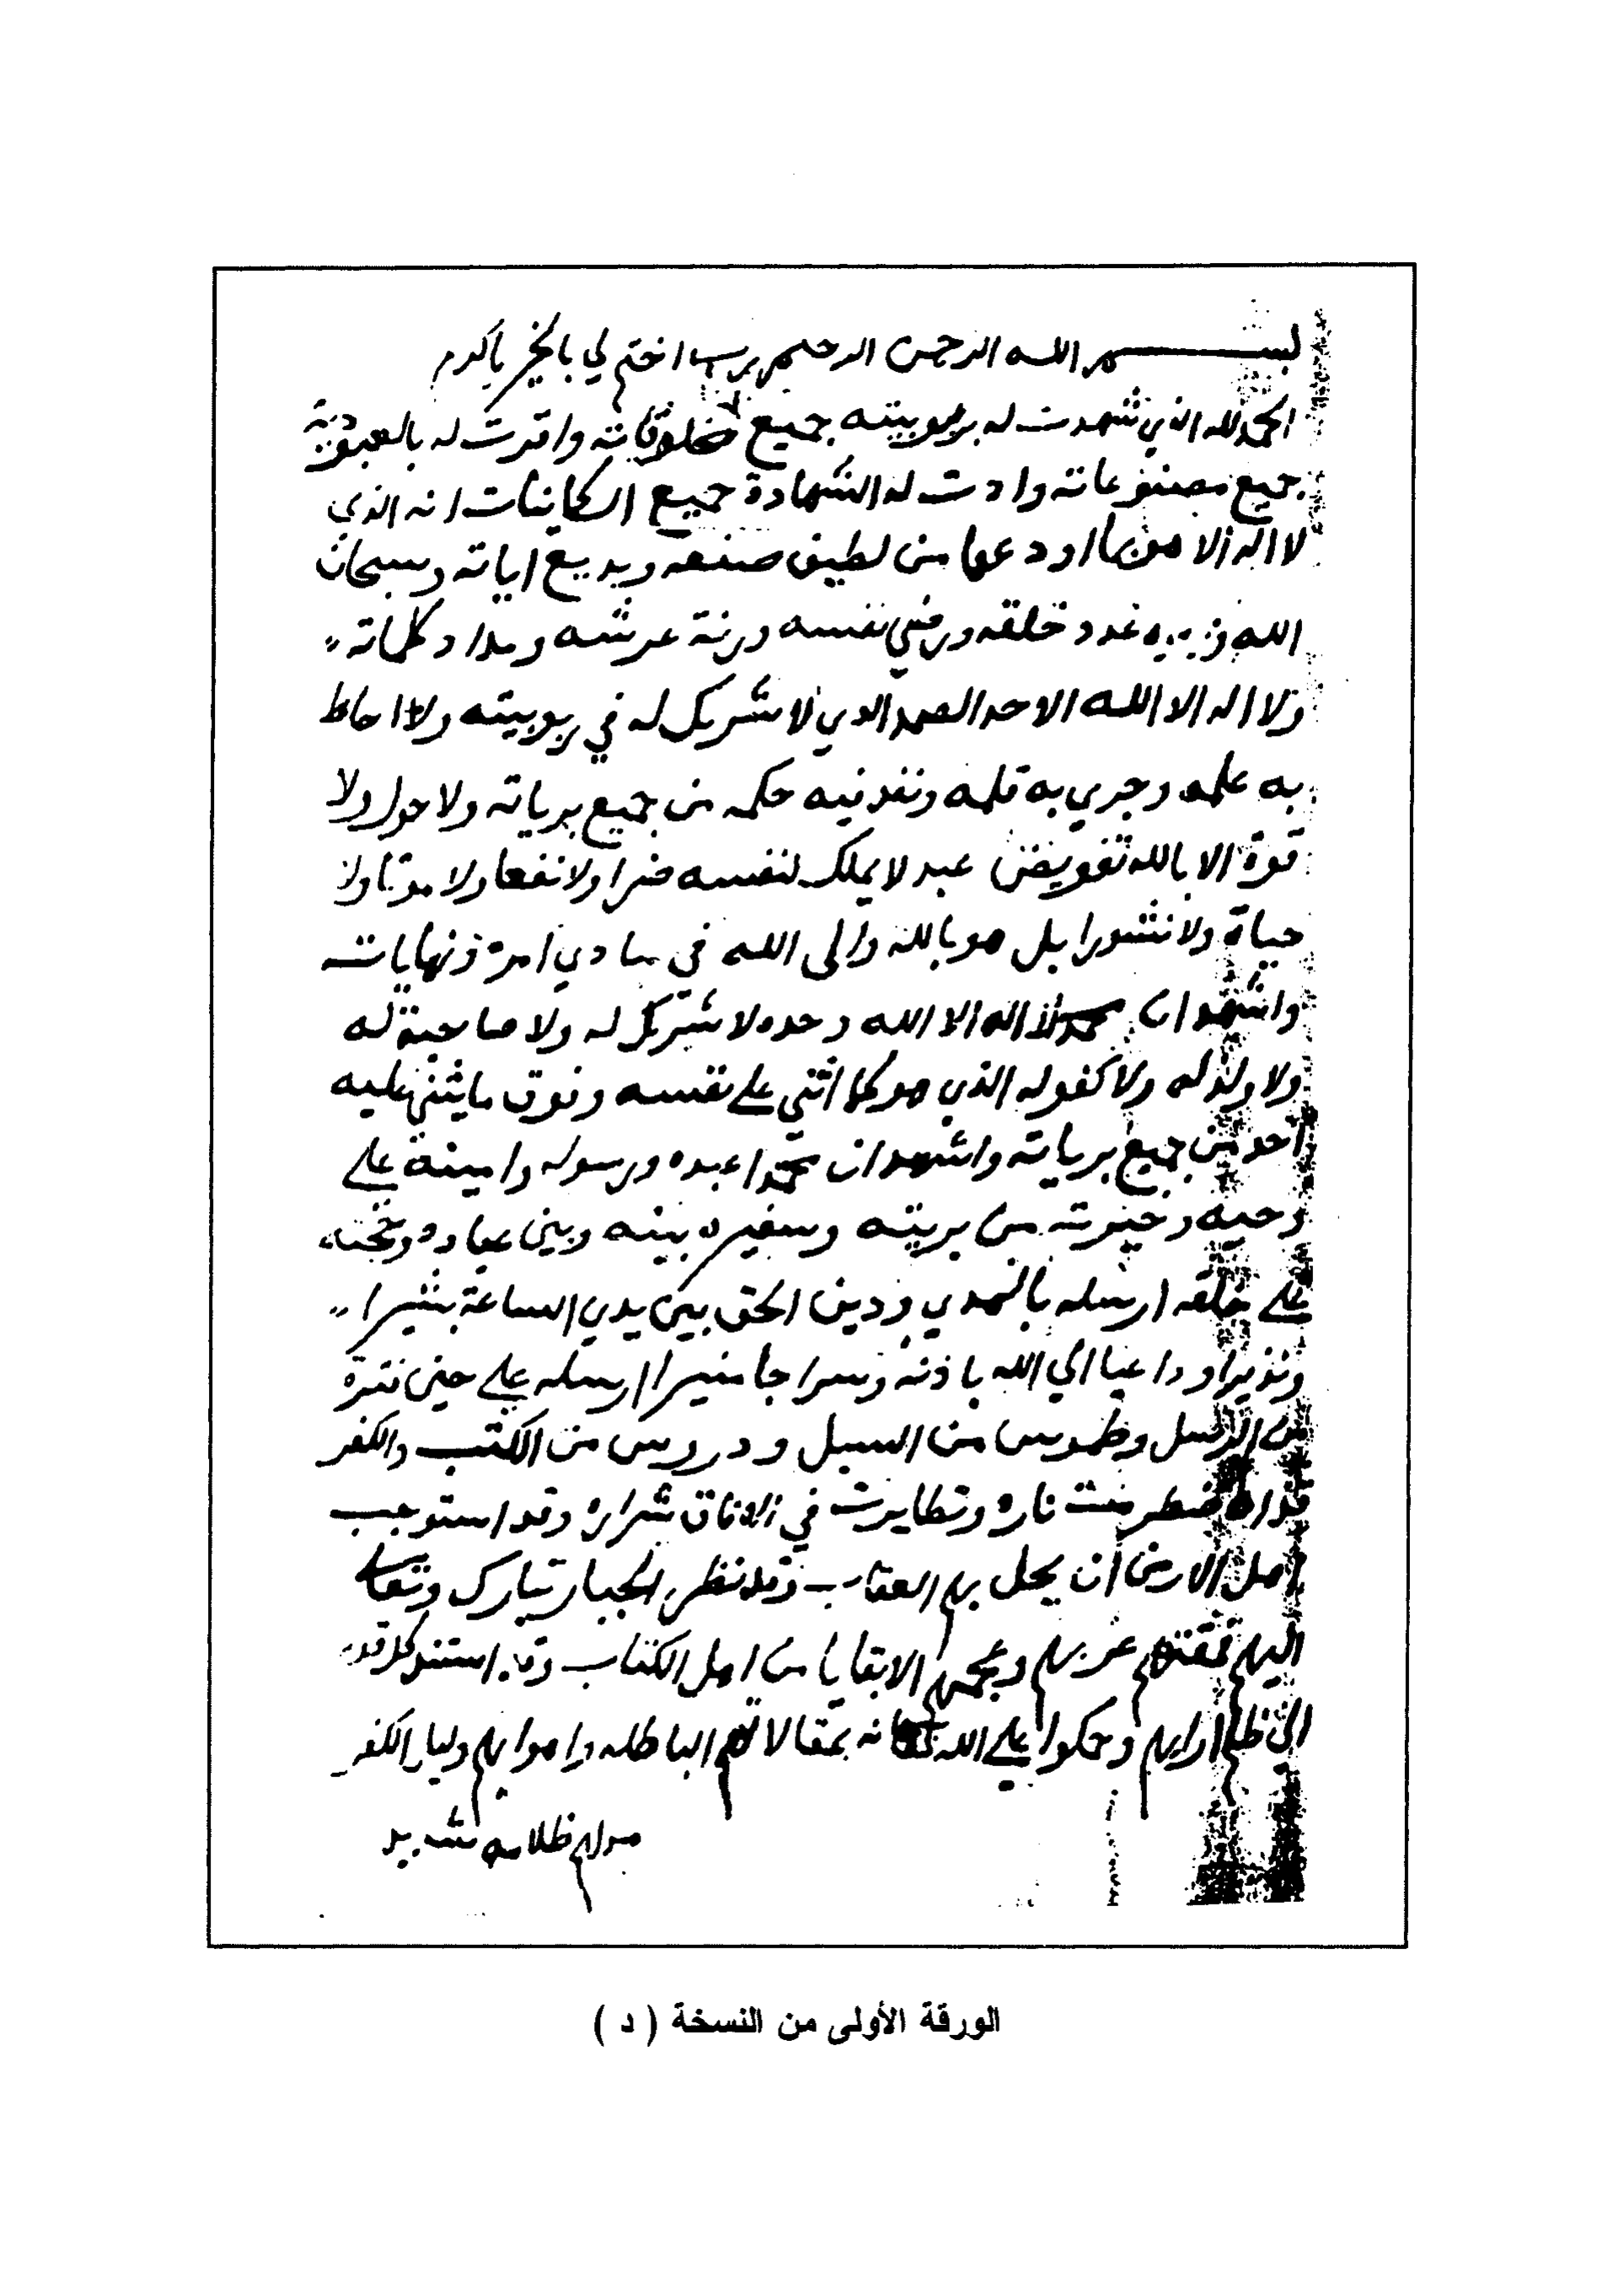 بسم الله الرحمن الرحيم رب اختم لي بالخير ياكرم
الحمد لله الذي شهدت له بربوبيته جميع مخلوقاته واقرت له بالعبودية
جميع مصنوعاته وادت له الشهادة جميع الكاينات انه الذي
لا اله الا هو بما اودعها من لطيف صنعه وبديع اياته وسبحان
الله وبحمده عدد خلقه ورضي نفسه وزنة عرشه ومداد كلماته
ولا اله الا الله الاحد الصمد الذي لا شريك له في ربوبيته ولا احاط
به علمه وجري به قلمه ونفذ فيه حكمه من جميع برياته ولا حول ولا
قوة الا بالله تفويض عبد لا يملك لنفسه ضرا ولا نفعا ولا موتا ولا
حياة ولا نشورا بل هو بالله والى الله في مبادي امره ونهاياته
واشهد ان لا اله الا الله وحده لا شريك له ولا صاحبة له
ولا ولد له ولا كفو له الذي هو كما اثني علي نفسه وفوق ما يثني عليه
احد من جميع برياته واشهد ان محمدا عبده ورسوله وامينه علي
وحيه وخيرته من بريته وسفيره بينه وبين عباده وحجته
علي خلقه ارسله بالهدي ودين الحق بين يدي الساعة بشيرا
ونذيرا وداعيا الي الله باذنه وسراجا منيرا ارسله علي حين فترة
من الرسل وطموس من السبل ودروس من الكتب والكفر
قد اضطرمت ناره وتطايرت في الافاق شراره وقد استوجب
اهل الارض ان يحل بهم العقاب وقد نظر الجبار تبارك وتعالي
اليهم فمقتهم عربهم وعجمهم الا بقايا من اهل الكتاب وقد استند كل قوم
الي ظلم ارايهم وحكموا علي الله بمقالاتهم الباطله واهوايهم وليل الكفر
مدلهم ظلامه شديد
الورقة الأولى من النسخة ( د )